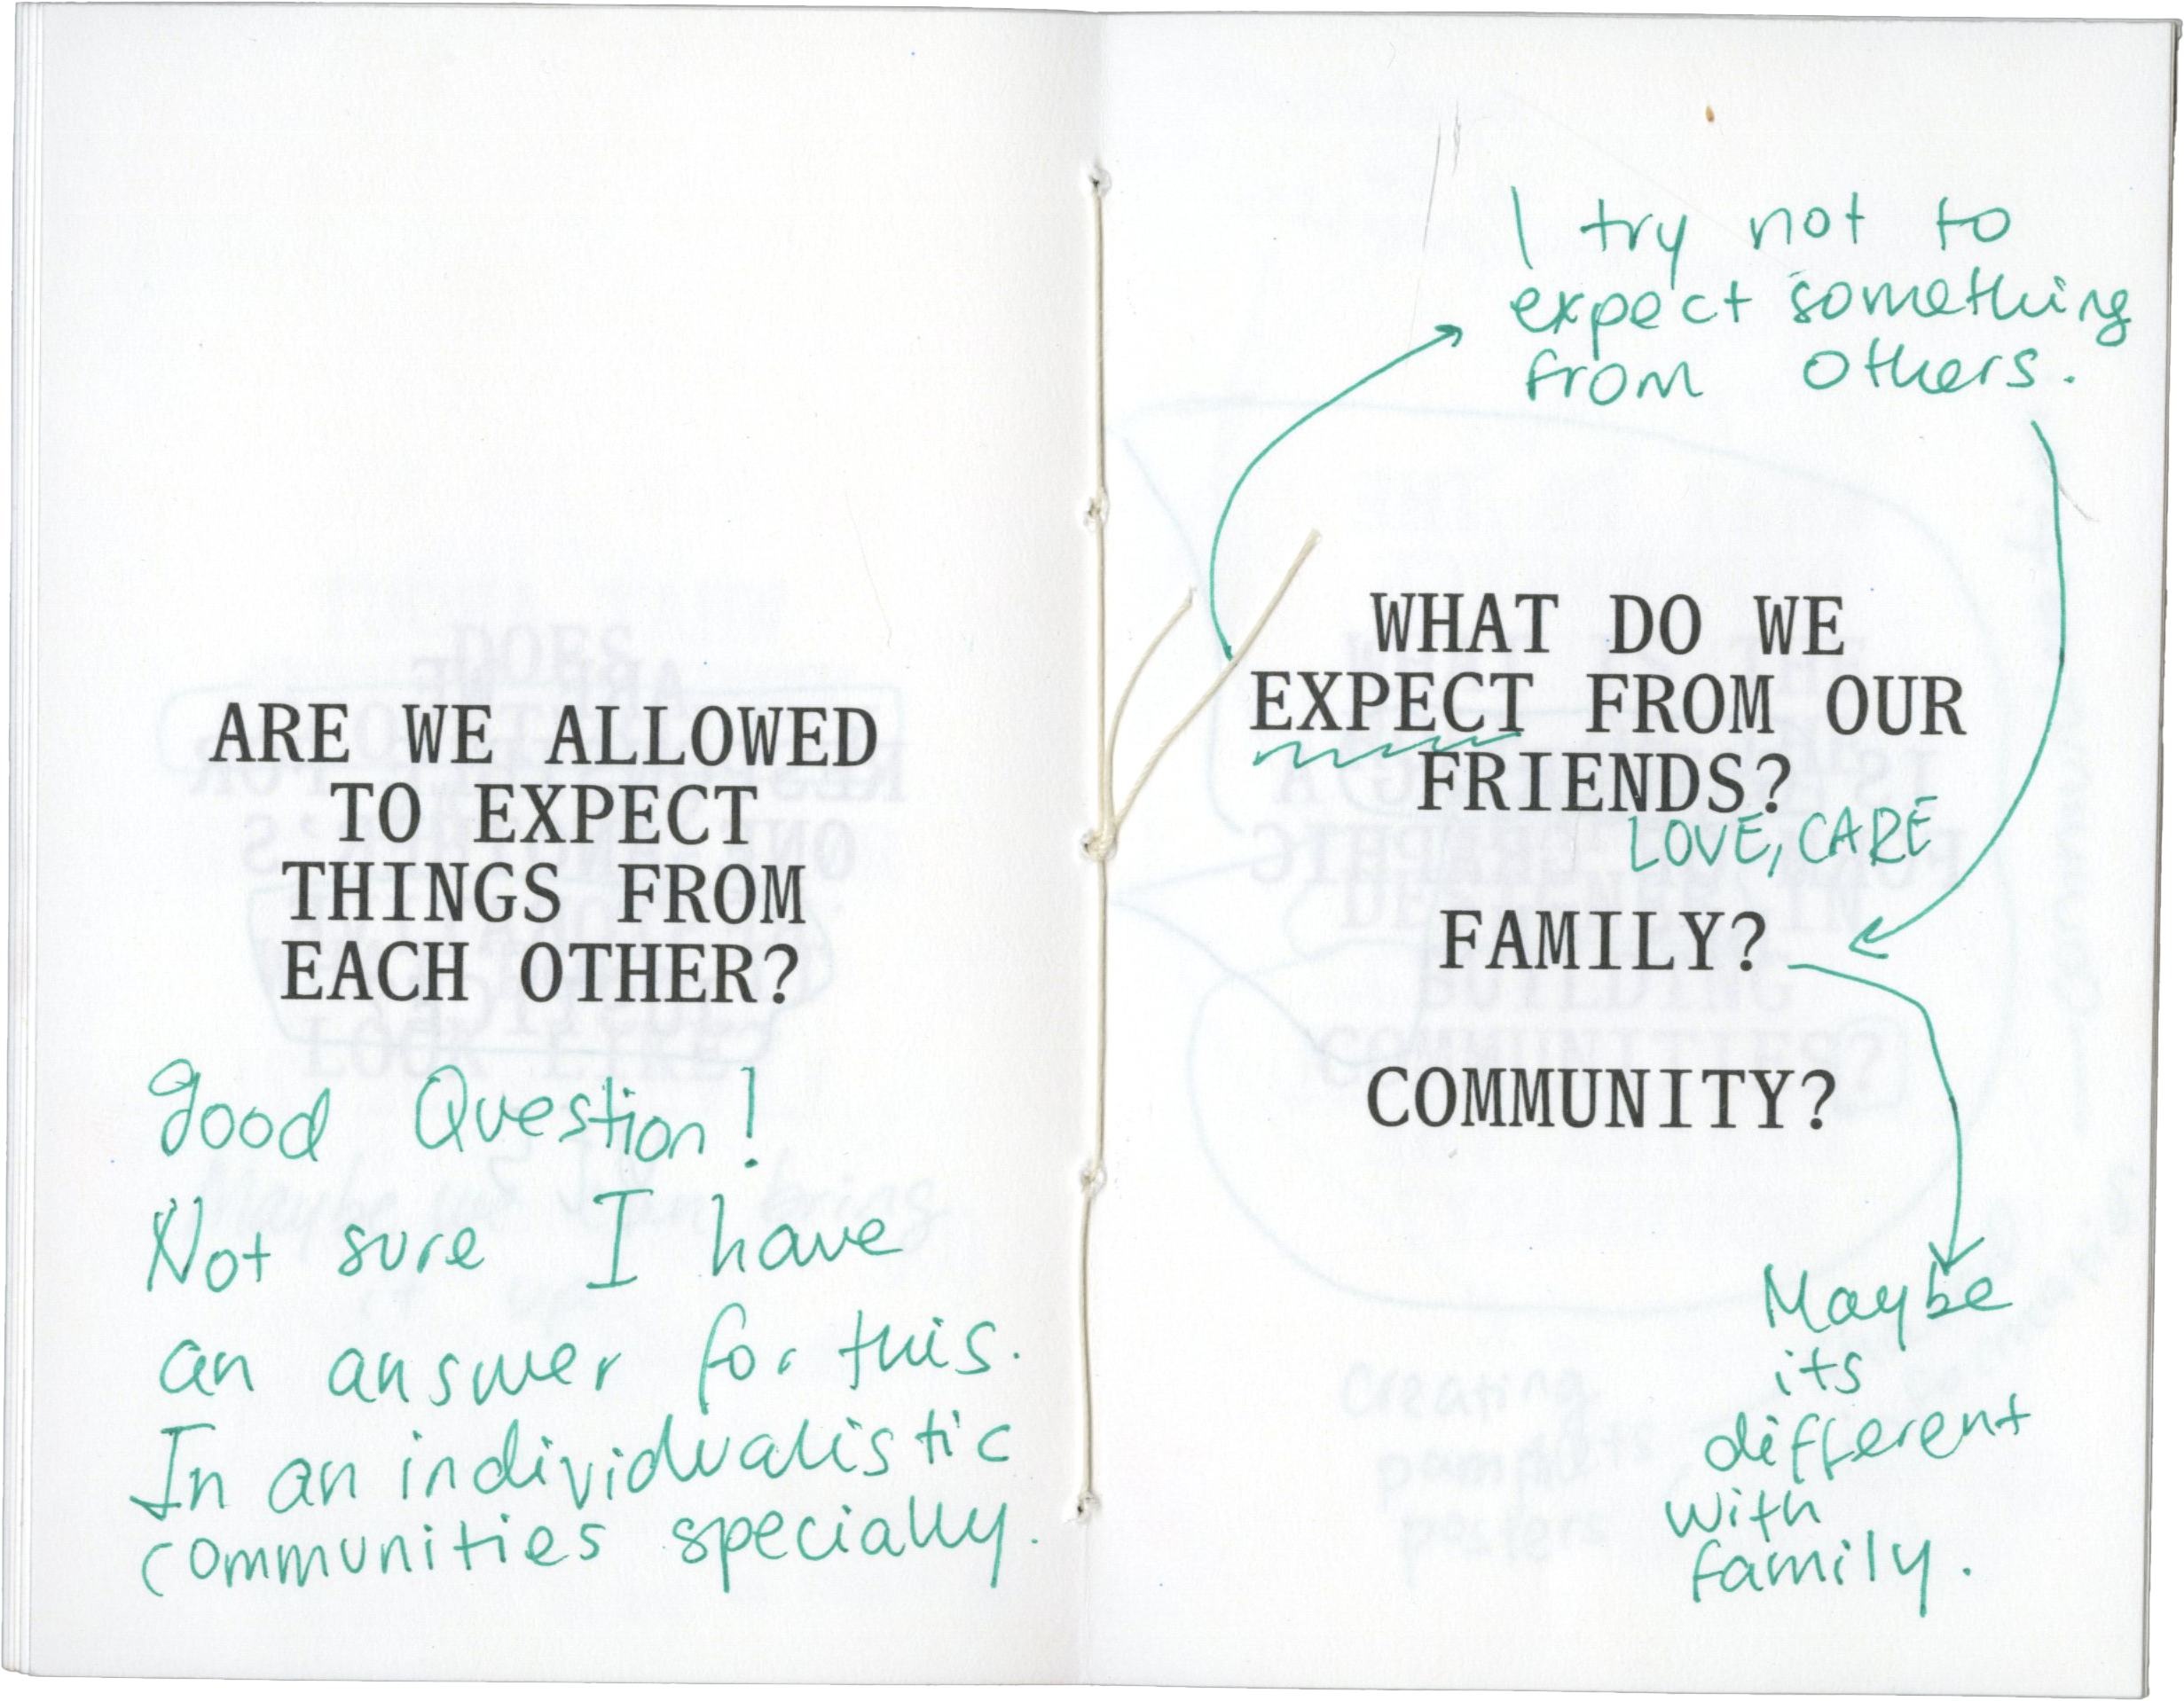 ARE WE ALLOWED
TO EXPECT
THINGS FROM
EACH OTHER?
good Question!
Not sure I have
an answer for this.
In an individualistic
communities specially.
I try not to
expect something
from others.
WHAT DO WE
EXPECT FROM OUR
FRIENDS?
LOVE, CARE
FAMILY?
COMMUNITY?
Maybe
its
different
with
family.
Maybe we can bring
it up
creating
pamphlets
posters